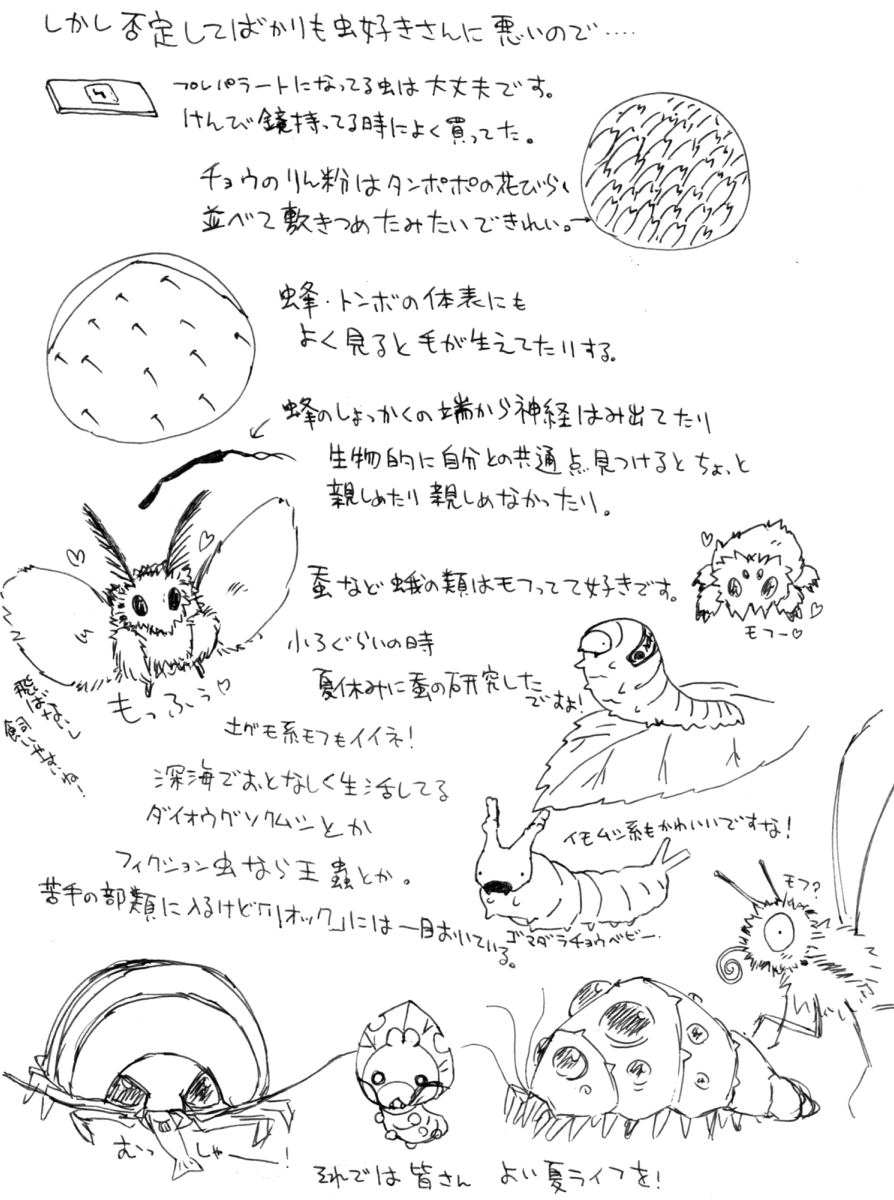 しかし否定してばかりも虫好きさんに悪いので‥‥
プレパラートになってる虫は大丈夫です。
けんび鏡持ってる時によく買ってた。
チョウのりん粉はタンポポの花びら
並べて敷きつめたみたいできれい。→
蜂・トンボの体表にも
よく見ると毛が生えてたりする。
蜂のしょっかくの端から神経はみ出てたり
生物的に自分との共通点見つけるとちょっと
親しめたり親しめなかったり。
蚕など蛾の類はモフってて好きです。
モフー♡
小ろぐらいの時
夏休みに蚕の研究した
ですよ!
もっふぅ♡
飛ばないし
土グモ系モフもイイネ!
深海でおとなしく生活してる
ダイオウグソクムシとか
イモムシ系もかわいいですな!
フィクション虫なら王蟲とか。
苦手の部類に入るけど「リオック」には一目おいている。
ゴマダラチョウベビー.
モフ?
むっしゃー!
それでは皆さん よい夏ライフを!